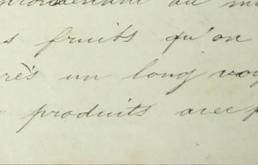 au
s fruits qu'on
rès un long voy
produits avec p